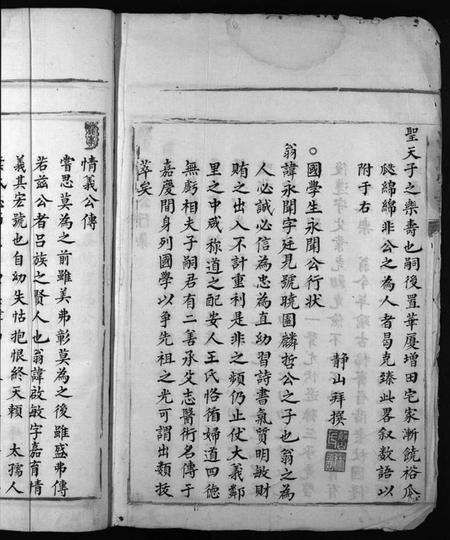 聖天子之樂壽也嗣後置華廈增田宅家漸饒裕瓜
瓞綿綿非公之為人者曷克臻此畧叙数語以
附于右
靜山拜撰
○國學生永開公行状
翁諱永開字廷見號曉園麟哲公之子也翁之為
人必誠必信為忠為直幼習詩書氣質明敏財
賄之出入不計重利是非之頻仍止仗大義鄰
里之中咸称道之配安人王氏恪循婦道四德
無虧相夫子嗣君有二善承父志醫術名傳于
嘉慶間身列國學以争先祖之光可謂出類拔
萃矣
情義公傳
嘗思莫為之前雖美弗彰莫為之後雖盛弗傳
若兹公者吕族之賢人也翁諱啟敏字嘉育情
義其宏號也自幼失怙抱恨終天賴太孺人